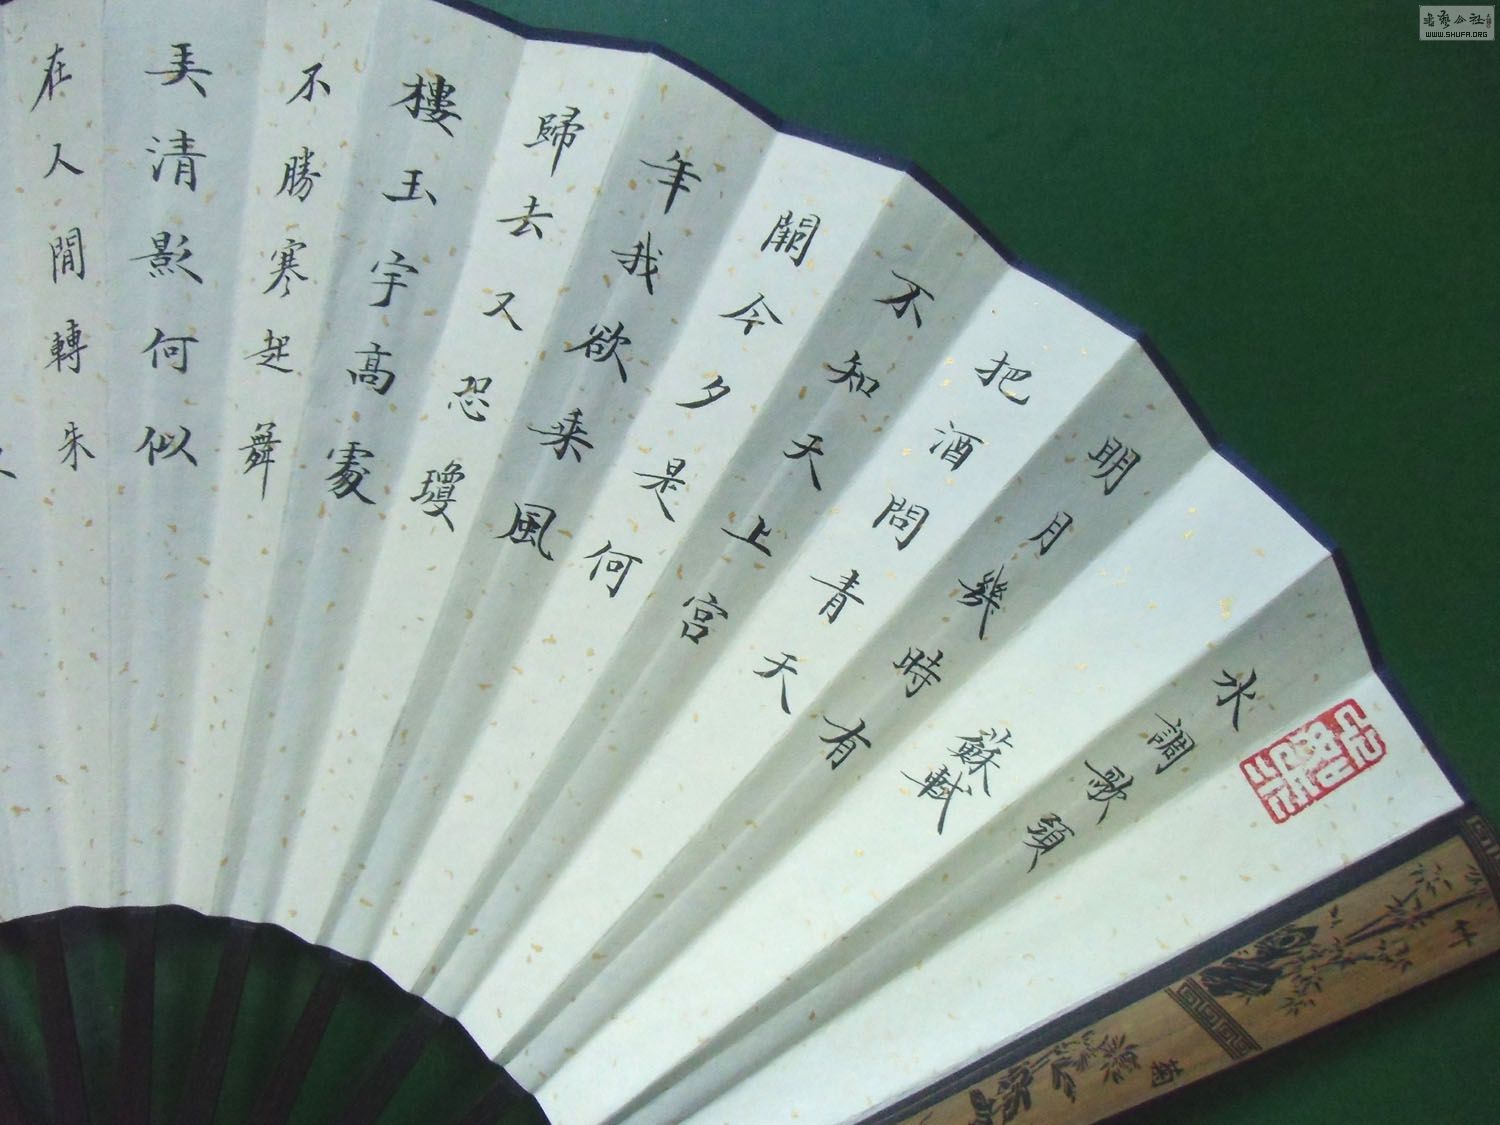 水調歌頭
蘇軾
明月幾時有
把酒問青天
不知天上宮
闕今夕是何
年我欲乘風
歸去又恐瓊
樓玉宇高處
不勝寒起舞
弄清影何似
在人間轉朱
竹
菊
書藝公社
WWW.SHUFA.ORG